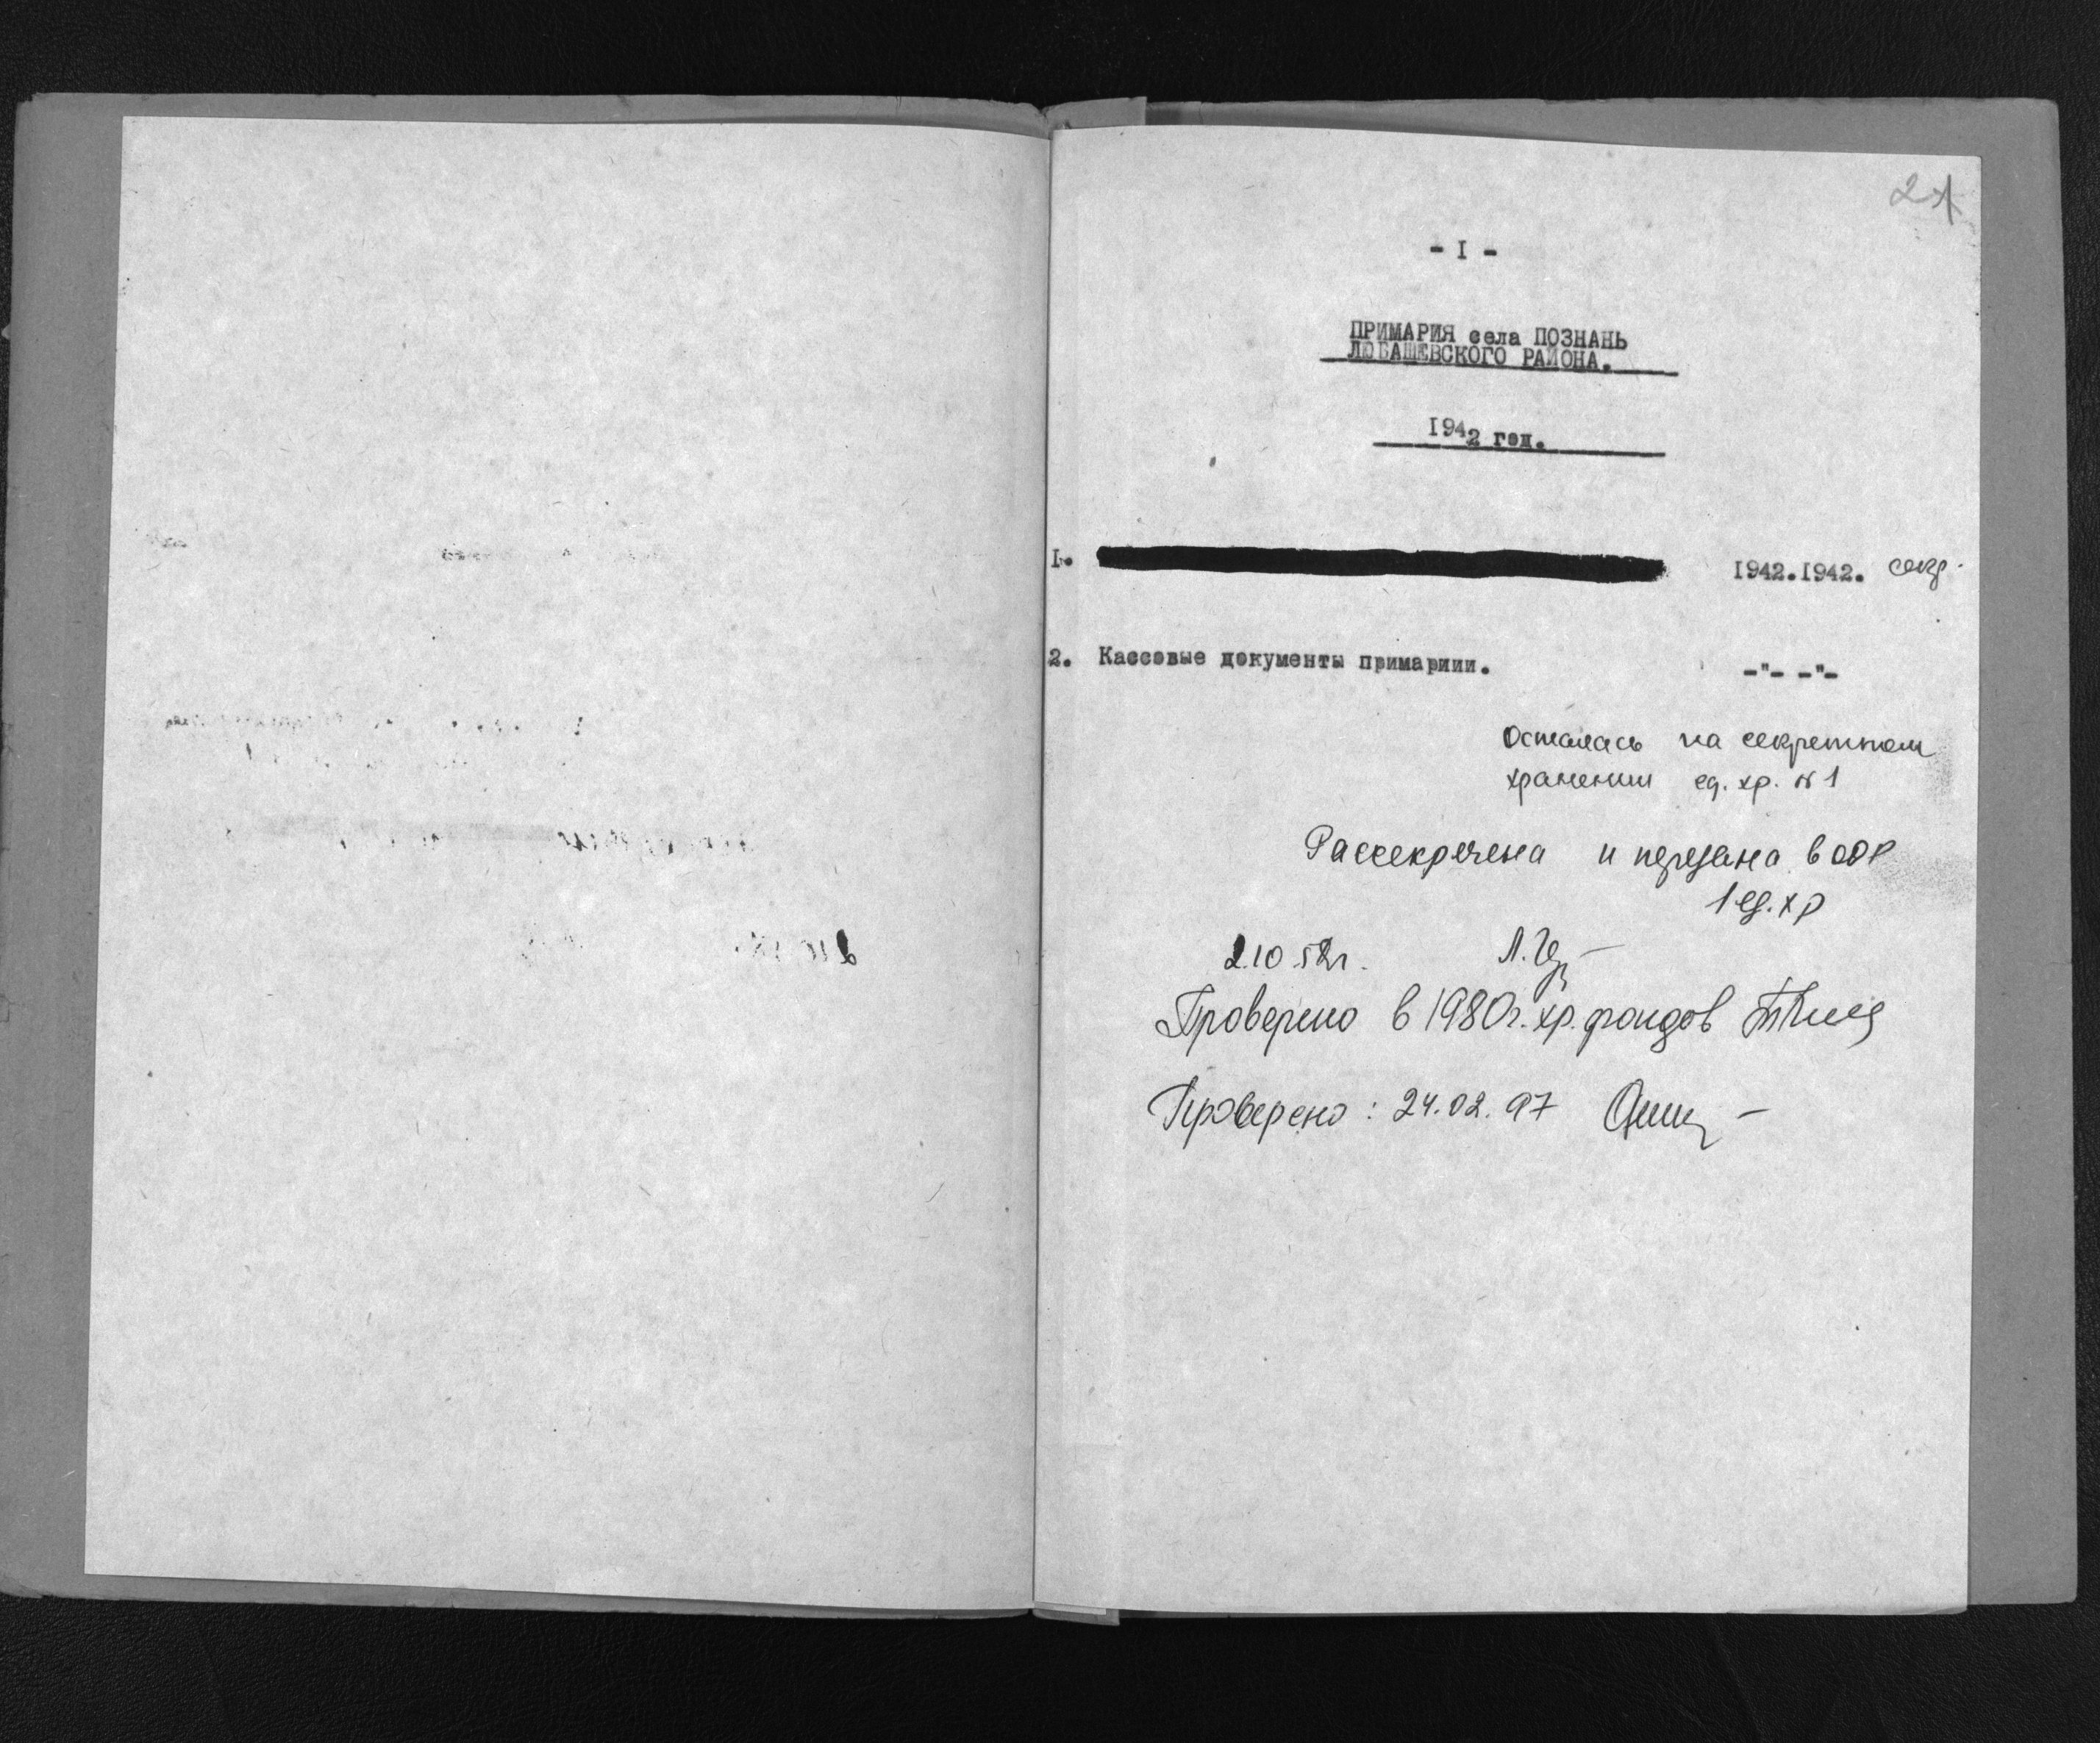 21
- I -
ПРИМАРИЯ села ПОЗНАНЬ
ЛЮБАШЕВСКОГО РАЙОНА.
1942 год.
1. 1942.1942. секр.
2. Кассовые документы примариии. -"- -"-
Осталась на секретном
хранении ед. хр. №1
Рассекречена и передана в ООР
1 ед. хр
2.10.52г. Л.
Проверено в 1980г. хр. фондов
Проверено: 24.02.97